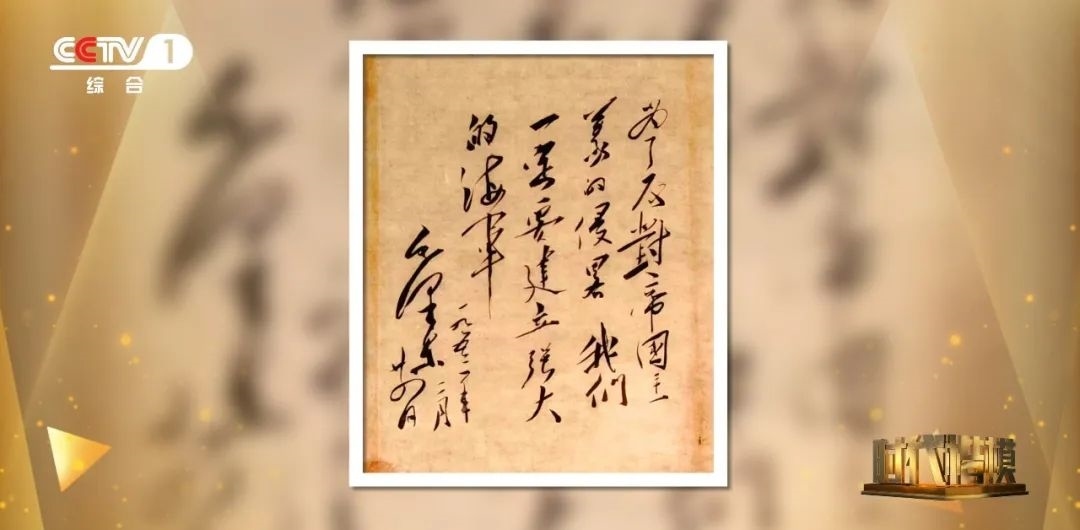 CCTV 1
综合
为了反對帝國主
義的侵畧 我們
一定要建立强大
的海軍
毛澤東
一九五三年
二月
廿四日
时代楷模